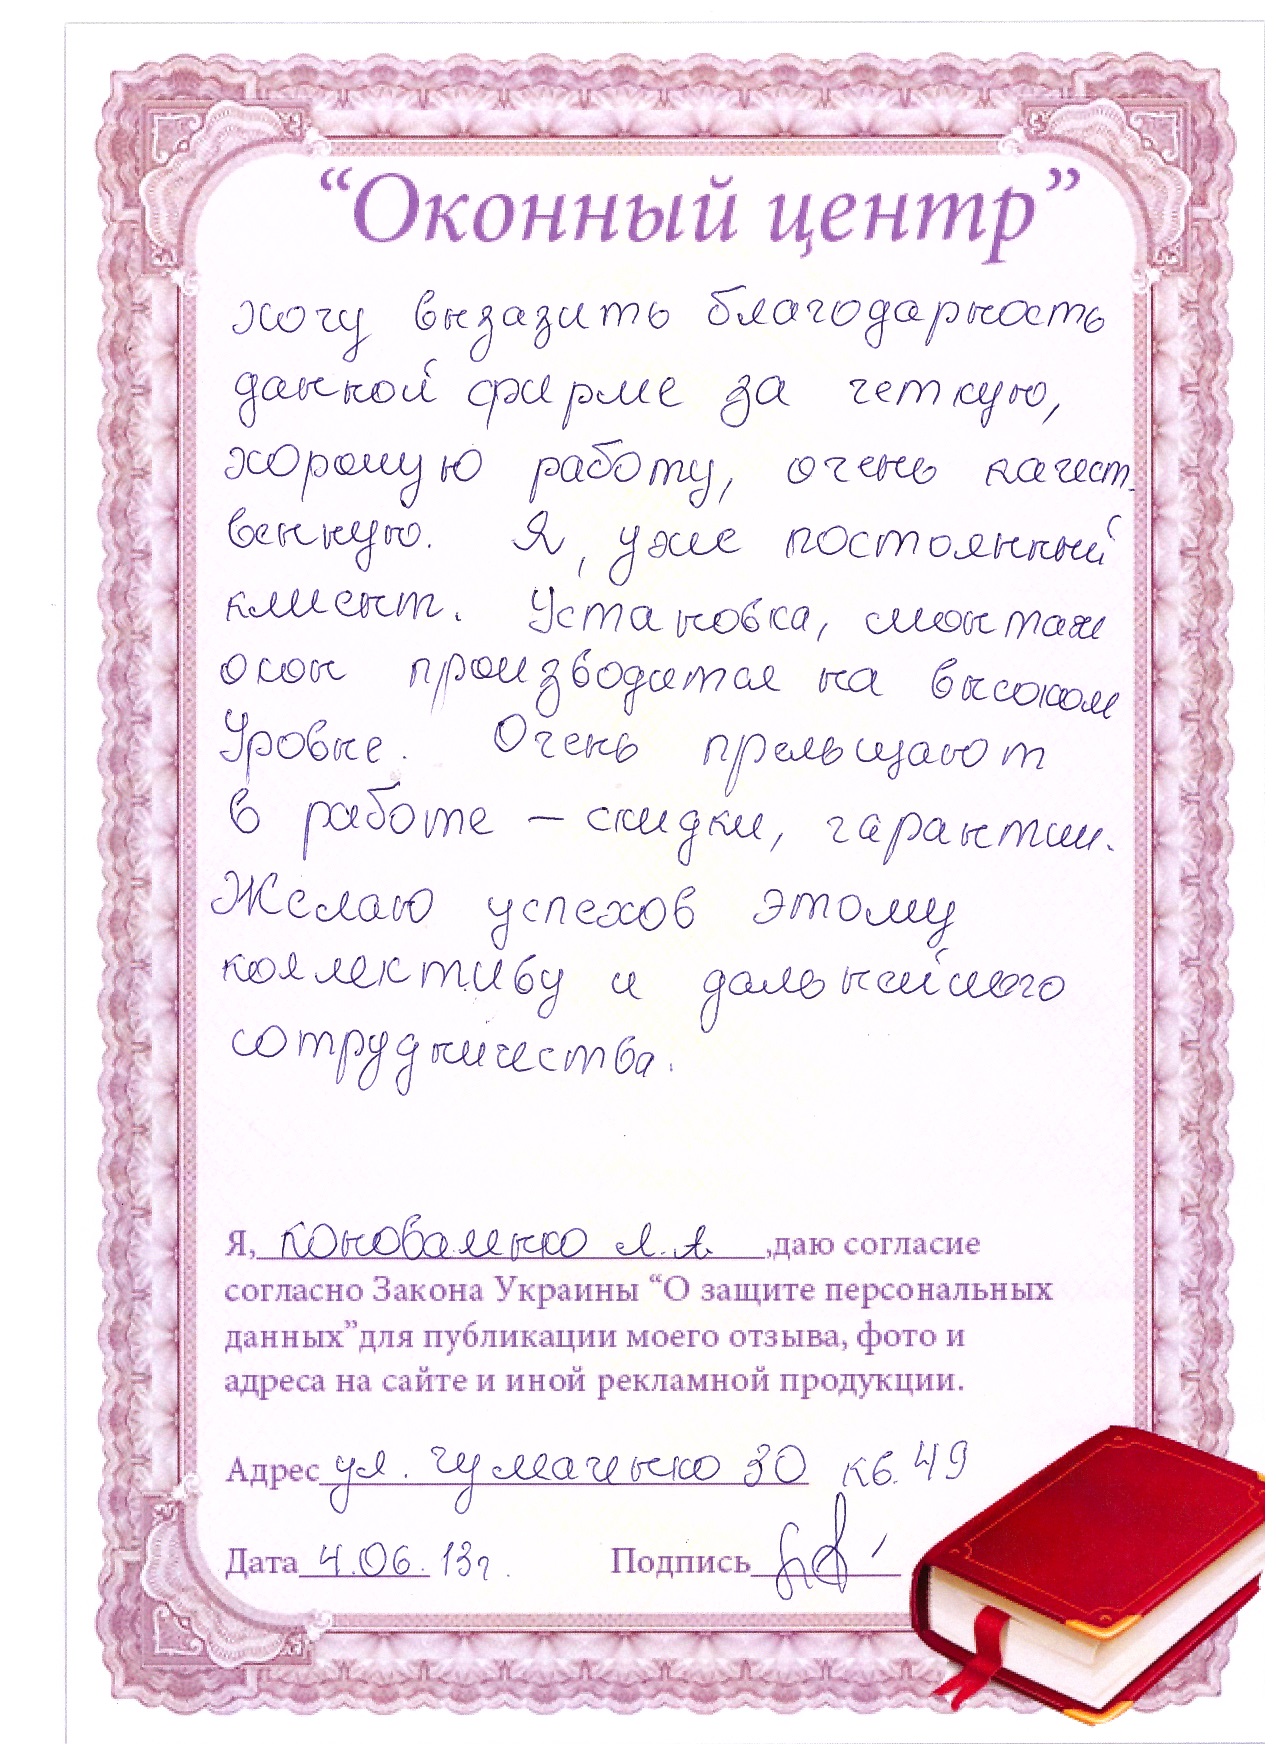 “Оконный центр”
Хочу вызазить благодарность
данной фирме за четкую,
хорошую работу, очень качест
венную. Я, уже постоянный
клиент. Установка, монтаж
окон производится на высоком
Уровне. Очень прельщают
в работе – скидки, гарантии.
Желаю успехов этому
коллективу и дальнейшего
сотрудничества.
Я, Коноваленко Л.А. ,даю согласие
согласно Закона Украины “О защите персональных
данных”для публикации моего отзыва, фото и
адреса на сайте и иной рекламной продукции.
Адрес ул. Чумаченко 30 кв. 49
Дата 4.06.13г. Подпись